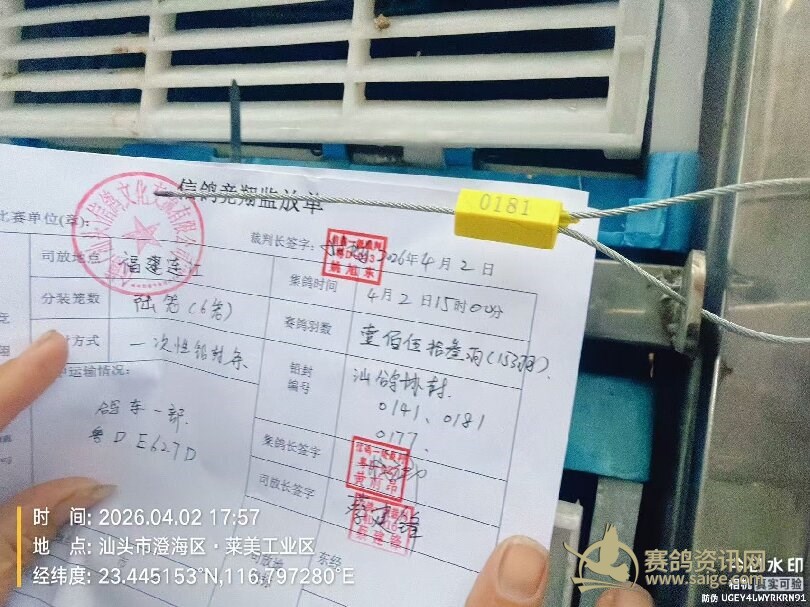 信鸽竞翔监放单
0181
比赛单位(章):
裁判长签字:
2026年4月2日
司放地点
福建连江
集鸽时间
4月2日15时00分
分装笼数
陆笼(6笼)
赛鸽羽数
壹佰伍拾叁羽(153羽)
方式
一次性铅封条
铅封
编号
汕鸽协封
0141、0181
0177.
运输情况:
鸽车一部
鲁DE627D
集鸽长签字
司放长签字
东经
时 间: 2026.04.02 17:57
地 点: 汕头市澄海区·莱美工业区
经纬度: 23.445153°N,116.797280°E
赛鸽资讯网
www.saige.com
水印
相机 真实可验
防伪 UGEY4LWYRKRN91